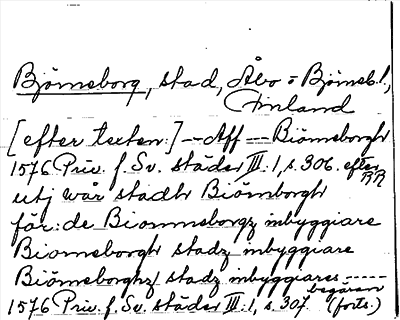 Björneborg, stad, Åbo o Björneb.l.,
Finland
[efter texten:] -- Aff --- Biörneborgh
1576 Priv. f. Sv. städer III:1, s. 306. efter RR
utj wår stadh Biörnborgh
för:de Biornneborgz inbyggiare
Biorneborgh stadz inbyggiare
Biörneborghz stadz inbyggiares -----
begäran
1576 Priv. f. Sv. städer III:1, s. 307 (forts.)